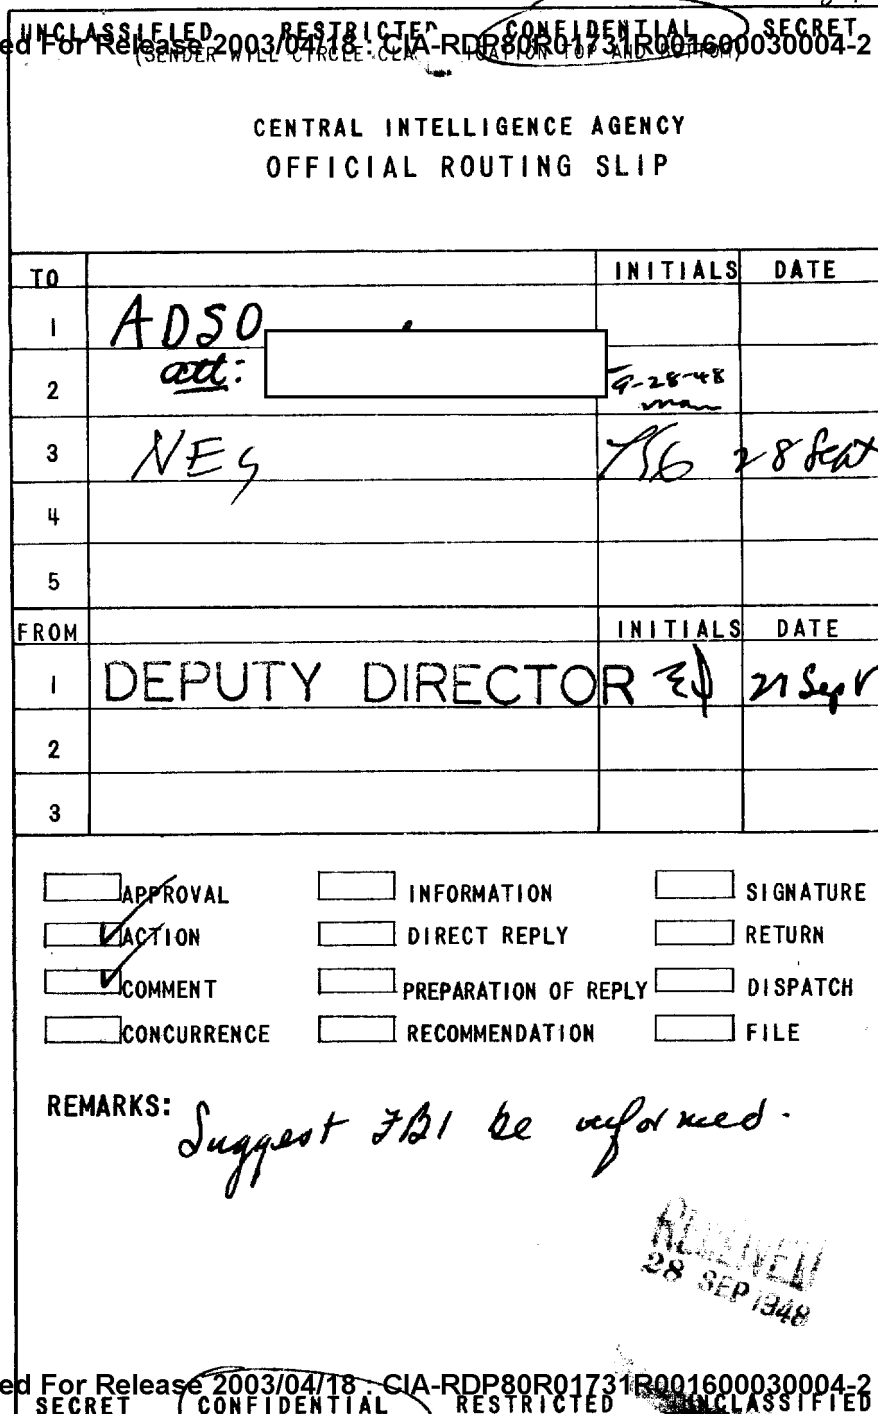 UNCLASSIFIED RESTRICTED CONFIDENTIAL SECRET
ed For Release 2003/04/18 : CIA-RDP80R01731R001600030004-2
(SENDER WILL CIRCLE CLA TOP AND BOTTOM)
CENTRAL INTELLIGENCE AGENCY
OFFICIAL ROUTING SLIP
TO INITIALS DATE
1 ADSO
2 att: 9-28-48
3 28 Sept
4
5
FROM INITIALS DATE
1 DEPUTY DIRECTOR Sept
2
3
APPROVAL INFORMATION SIGNATURE
ACTION DIRECT REPLY RETURN
COMMENT PREPARATION OF REPLY DISPATCH
CONCURRENCE RECOMMENDATION FILE
REMARKS: Suggest FBI be informed.
RECEIVED
28 SEP 1948
ed For Release 2003/04/18 : CIA-RDP80R01731R001600030004-2
SECRET CONFIDENTIAL RESTRICTED UNCLASSIFIED